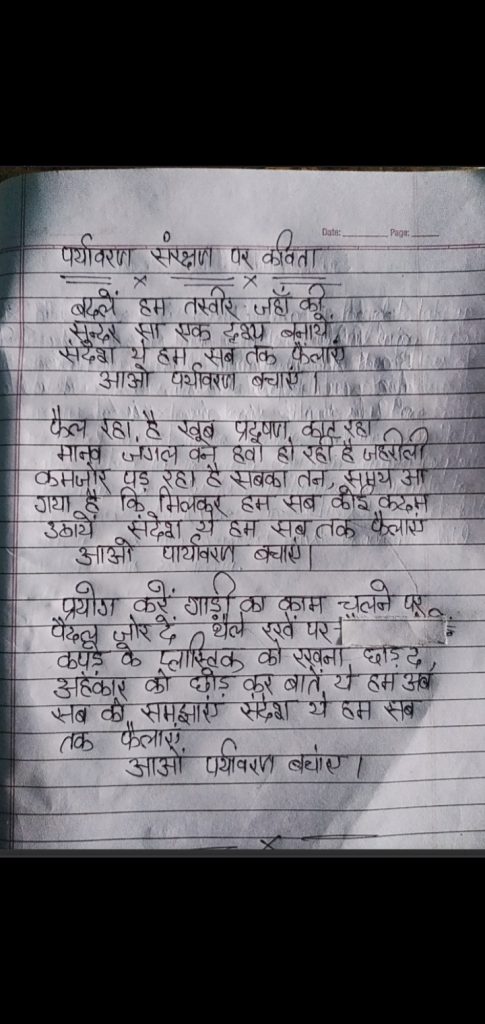 Date: Page:
पर्यावरण संरक्षण पर कविता
बदलें हम तस्वीर जहाँ की
सुन्दर सा एक दृश्य बनायें
संदेश ये हम सब तक फैलाएं
आओ पर्यावरण बचाएं।
फैल रहा है खूब प्रदूषण काट रहा
मानव जंगल वन हवा हो रही है जहरीली
कमजोर पड़ रहा है सबका तन, समय आ
गया है कि मिलकर हम सब कोई कदम
उठायें संदेश ये हम सब तक फैलाएं
आओ पार्यावरण बचाएं।
प्रयोग करें गाड़ी का काम चलने पर
पैदल जोर दें थैले रखें पर
कपड़े के प्लास्टिक को रखना छोड़ दें,
अहंकार को छोड़ कर बातें ये हम अब
सब को समझाएं संदेश ये हम सब
तक फैलाएं
आओं पर्यावरण बचांए।